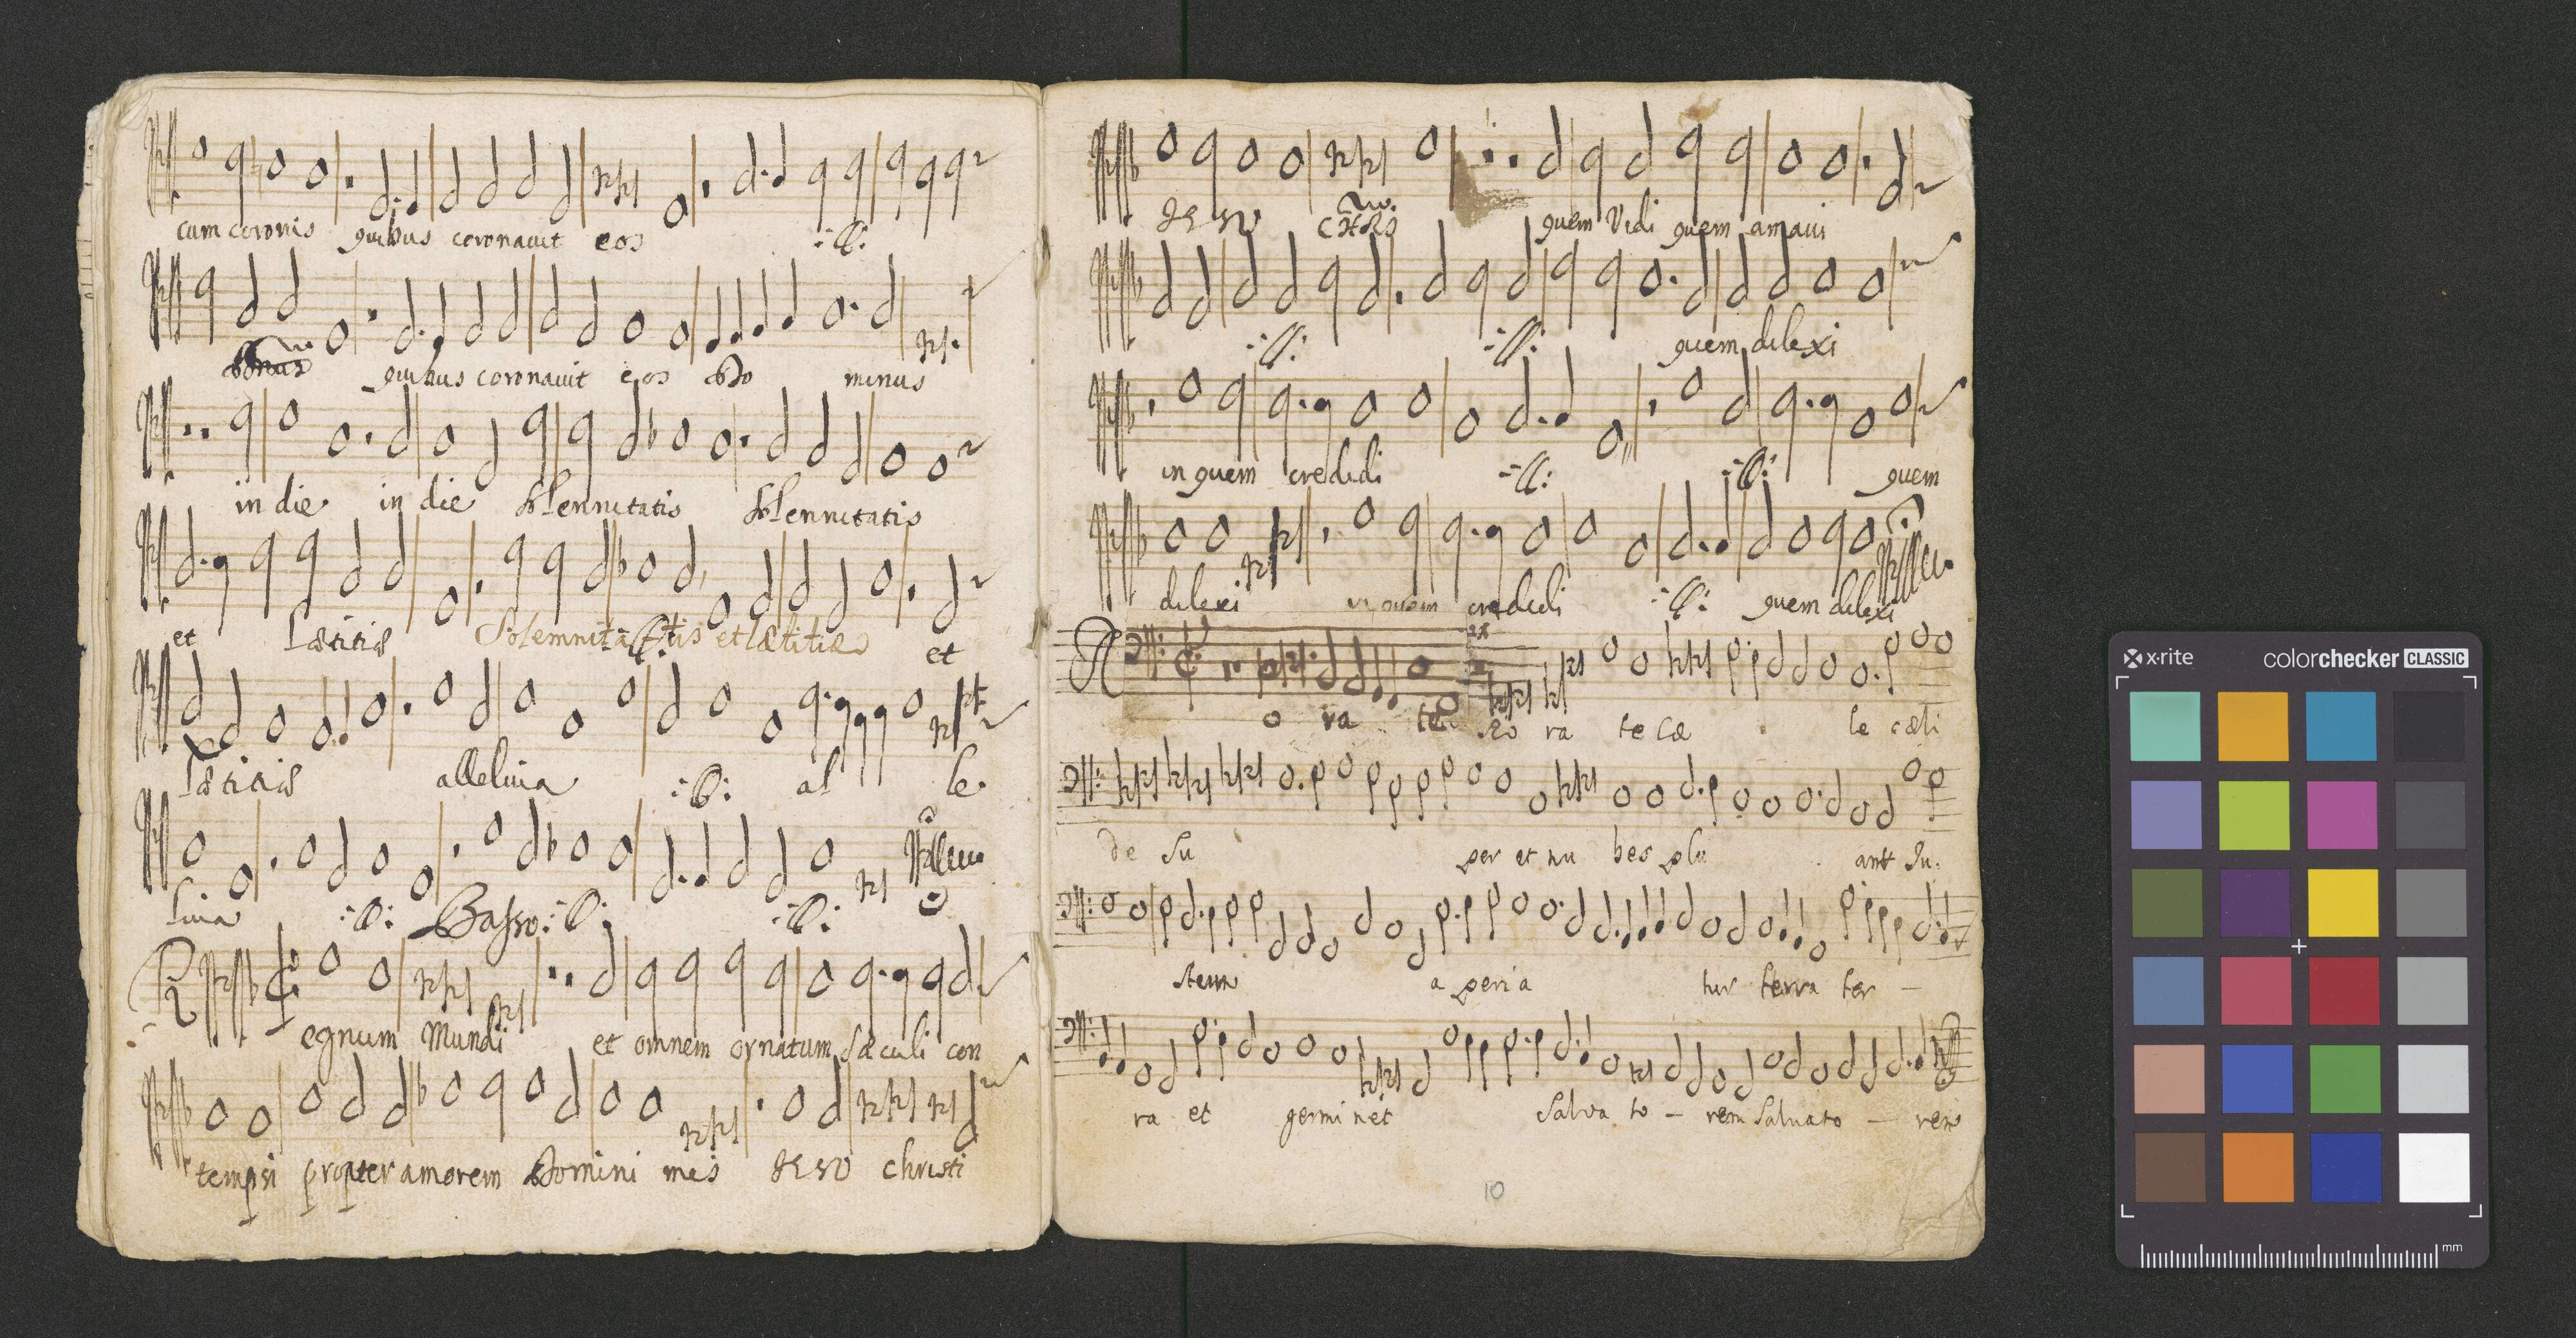 cum coronis quibus coronauit eos :ll:
quibus coronauit eos Do minus
in die in die Solennitatis Solennitatis
et Lætitiæ Solemnitatis et lætitiæ et
Lætitiæ alleluia :ll: al le
luia :ll: Basso :ll: :ll:
Regnum Mundi et omnem ornatum sæculi con
tempsi propter amorem Domini mei JESU christi
JESU CHRS quem Vidi quem amaui
:ll: :ll: quem dilexi
in quem credidi :ll: :ll: quem
dilexi in quem credidi :ll: quem dilexi
o ra te Ro ra te cæ le cæli
de Su per et nu bes plu ant Ju.
stum a peria tur terra ter –
ra et germi net Salva to – rem Saluato – rem
10
x·rite colorchecker CLASSIC
mm